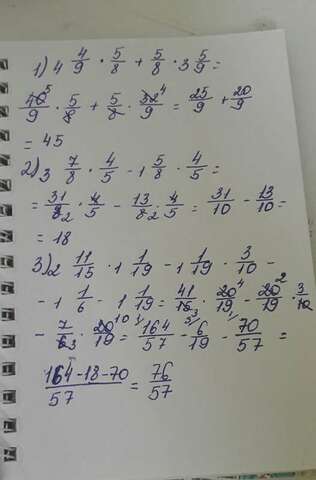 1) 4 4/9 · 5/8 + 5/8 · 3 5/9 =
40⁵/9 · 5/8 + 5/8 · 32⁴/9 = 25/9 + 20/9
= 45
2) 3 7/8 · 4/5 - 1 5/8 · 4/5 =
= 31/8₂ · 4/5 - 13/8₂ · 4/5 = 31/10 - 13/10 =
= 18
3) 2 11/15 · 1 1/19 - 1 1/19 · 3/10 -
- 1 1/6 - 1 1/19 = 41/15₃ · 20⁴/19 - 20²/19 · 3/10₁
- 7/6₃ · 20¹⁰/19 = 164/57 - 6/19 - 70/57 =
164-18-70/57 = 76/57